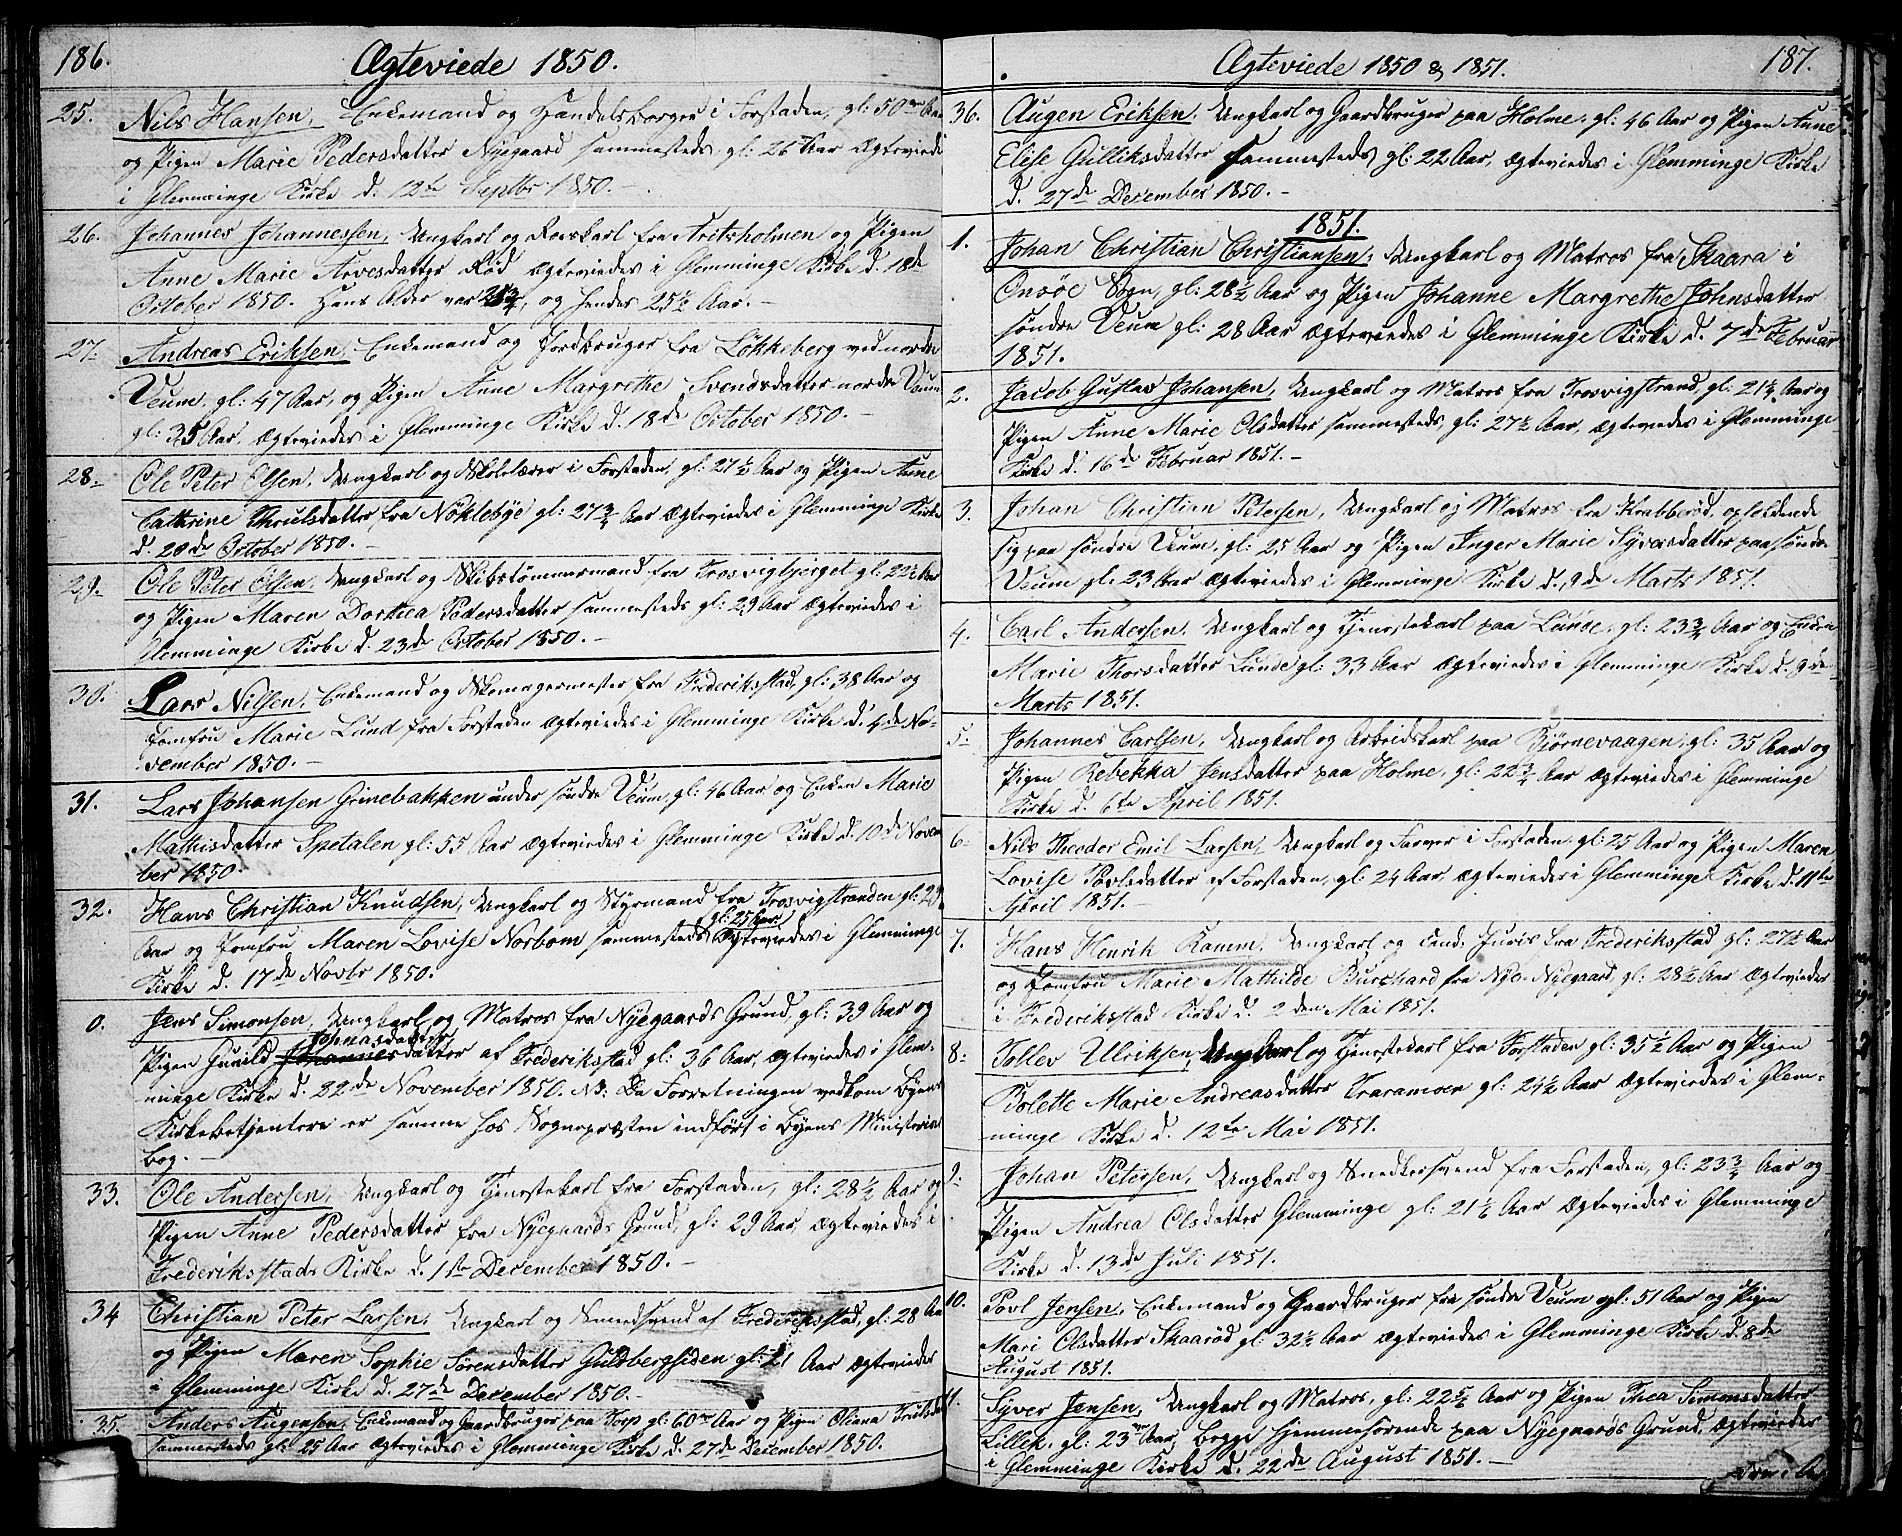 186.
Ægteviede 1850.
25. Nils Hansen, Enkemand og Handelsborger i Forstaden, gl: 50 Aar
og Pigen Marie Pedersdatter Nyegaard sammesteds, gl: 26 Aar Ægteviede
i Glemminge Kirke d. 12te Septbr 1850.
26. Johannes Johannessen, Ungkarl og Roerskarl fra Aritsholmen og Pigen
Anne Marie Arvesdatter Röd Ægteviedes i Glemminge Kirke d. 18de
October 1850. Hans Alder var og hendes 25½ Aar.
27. Andreas Eriksen, Enkemand og Jordbruger fra Lökkeberg ved nordre
Veum, gl: 47 Aar, og Pigen Anne Margrethe Svendsdatter nordre Veum
gl: 35 Aar, Ægteviedes i Glemminge Kirke d. 18de October 1850.
28. Ole Peter Olsen, Ungkarl og Skolelærer i Forstaden, gl: 27½ Aar og Pigen Anne
Cathrine Thrulsdatter fra Nöklebye gl: 27¾ Aar Ægteviedes i Glemminge Kirke
d. 20de October 1850.
29. Ole Peter Olsen, Ungkarl og Skibstömmermand fra Trosvigbjerget gl: 22½ Aar
og Pigen Maren Dorthea Pedersdatter sammesteds gl: 29 Aar Ægteviedes i
Glemminge Kirke d. 23de October 1850.
30. Lars Nilsen, Enkemand og Skomagermester fra Frederiksstad, gl: 38 Aar og
Jomfru Marie Lund fra Forstaden Ægteviedes i Glemminge Kirke d. 4de No-
vember 1850.
31. Lars Johansen Grinebakken under söndre Veum, gl: 46 Aar og Enken Marie
Mathisdatter Spetalen gl: 55 Aar Ægteviedes i Glemminge Kirke d. 10de Novem
ber 1850.
32. Hans Christian Knudsen, Ungkarl og Styrmand fra Trosvigstranden gl: 29
gl: 25 Aar
Aar og Jomfru Maren Lovise Norbom sammesteds Ægteviedes i Glemminge
Kirke d. 17de Novbr 1850.
0. Jens Simonsen, Ungkarl og Matros fra Nyegaards Grund, gl: 39 Aar og
Jonasdatter
Pigen Gunild Johannesdatter af Frederikstad gl: 36 Aar, Ægteviedes i Glem-
minge Kirke d. 22de November 1850. NB: Da Forretningen vedkom Byens
Kirkebetjentere er samme hos Sognepræsten indført i Byens Ministerial
bog.
33. Ole Andersen, Ungkarl og Tjenestekarl fra Forstaden, gl: 28½ Aar og
Pigen Anne Pedersdatter fra Nyegaards Grund, gl: 29 Aar, Ægteviedes i
Frederiksstads Kirke d. 1ste December 1850.
34 Christian Peter Larsen, Ungkarl og Smedsvend af Frederiksstad, gl: 28 Aar
og Pigen Maren Sophie Sörensdatter Guldbergsiden gl: 21 Aar Ægteviedes
i Glemminge Kirke d. 27de December 1850.
35. Anders Augensen, Enkemand og Gaardbruger paa Torp gl: 60 Aar og Pigen Oliana Trulsdatter
sammesteds gl: 25 Aar Ægteviedes i Glemminge Kirke d. 27de December 1850.
187.
Ægteviede 1850 & 1851.
36. Augen Eriksen, Ungkarl og Gaardbruger paa Holme, gl: 46 Aar og Pigen Anne
Elise Gulliksdatter sammesteds, gl: 22 Aar, Ægteviedes i Glemminge Kirke
d. 27de December 1850.
1851.
1. Johan Christian Christiansen, Ungkarl og Matros fra Skaara i
Onsöe Sogn, gl: 28½ Aar og Pigen Johanne Margrethe Johnsdatter
söndre Veum gl: 28 Aar Ægteviedes i Glemminge Kirke d. 7de Februar
1851.
2. Jacob Gustav Johansen, Ungkarl og Matros fra Trosvigstrand, gl: 21½ Aar og
Pigen Anne Marie Olsdatter sammesteds, gl: 27½ Aar, Ægteviedes i Glemminge
Kirke d. 16de Februar 1851.
3. Johan Christian Petersen, Ungkarl og Matros fra Krabberöd, opholdende
sig paa söndre Veum, gl: 25 Aar og Pigen Inger Marie Syversdatter paa söndre
Veum gl: 23 Aar Ægteviedes i Glemminge Kirke d. 9de Marts 1851.
4. Carl Andersen, Ungkarl og Tjenestekarl paa Lunde, gl: 23¾ Aar og Enken
Marie Thorsdatter Lunde gl: 33 Aar Ægteviedes i Glemminge Kirke d. 9de
Marts 1851.
5. Johannes Carlsen, Ungkarl og Arbeidskarl paa Björnevaagen, gl: 35 Aar og
Pigen Rebekka Jensdatter paa Holme, gl: 22¾ Aar Ægteviedes i Glemminge
Kirke d. 6te April 1851.
6. Nils Theodor Emil Larsen, Ungkarl og Farver i Forstaden, gl: 25 Aar og Pigen Maren
Lovise Povlsdatter af Forstaden, gl: 24 Aar Ægteviedes i Glemminge Kirke d. 11te
April 1851.
7. Hans Henrik Kamm, Ungkarl og Cand. Juris fra Frederiksstad gl: 27½ Aar
og Jomfru Marie Mathilde Burchard fra Nye-Nyegaard, gl: 28½ Aar Ægteviedes
i Frederiksstad Kirke d. 2den Mai 1851.
8. Tollev Ulriksen, Ungkarl og Tjenestekarl fra Forstaden gl: 35½ Aar og Pigen
Bolette Marie Andreasdatter Traramoen gl: 24½ Aar Ægteviedes i Glem-
minge Kirke d. 12te Mai 1851.
9. Johan Petersen, Ungkarl og Snedkersvend fra Forstaden, gl: 23¾ Aar og
Pigen Andrea Olsdatter Glemminge gl: 21½ Aar Ægteviedes i Glemminge
Kirke d. 13de Juli 1851.
10. Povl Jensen, Enkemand og Gaardbruger fra söndre Veum gl: 51 Aar og Pigen
Mari Olsdatter Skaaröd gl: 32½ Aar Ægteviedes i Glemminge Kirke d. 8de
August 1851.
11. Syver Jensen, Ungkarl og Matros, gl: 22 Aar og Pigen Thea Simonsdatter
Lillek, gl: 23 Aar, begge hjemmehörende paa Nyegaards Grund, Ægteviedes
i Glemminge Kirke d. 22de August 1851.